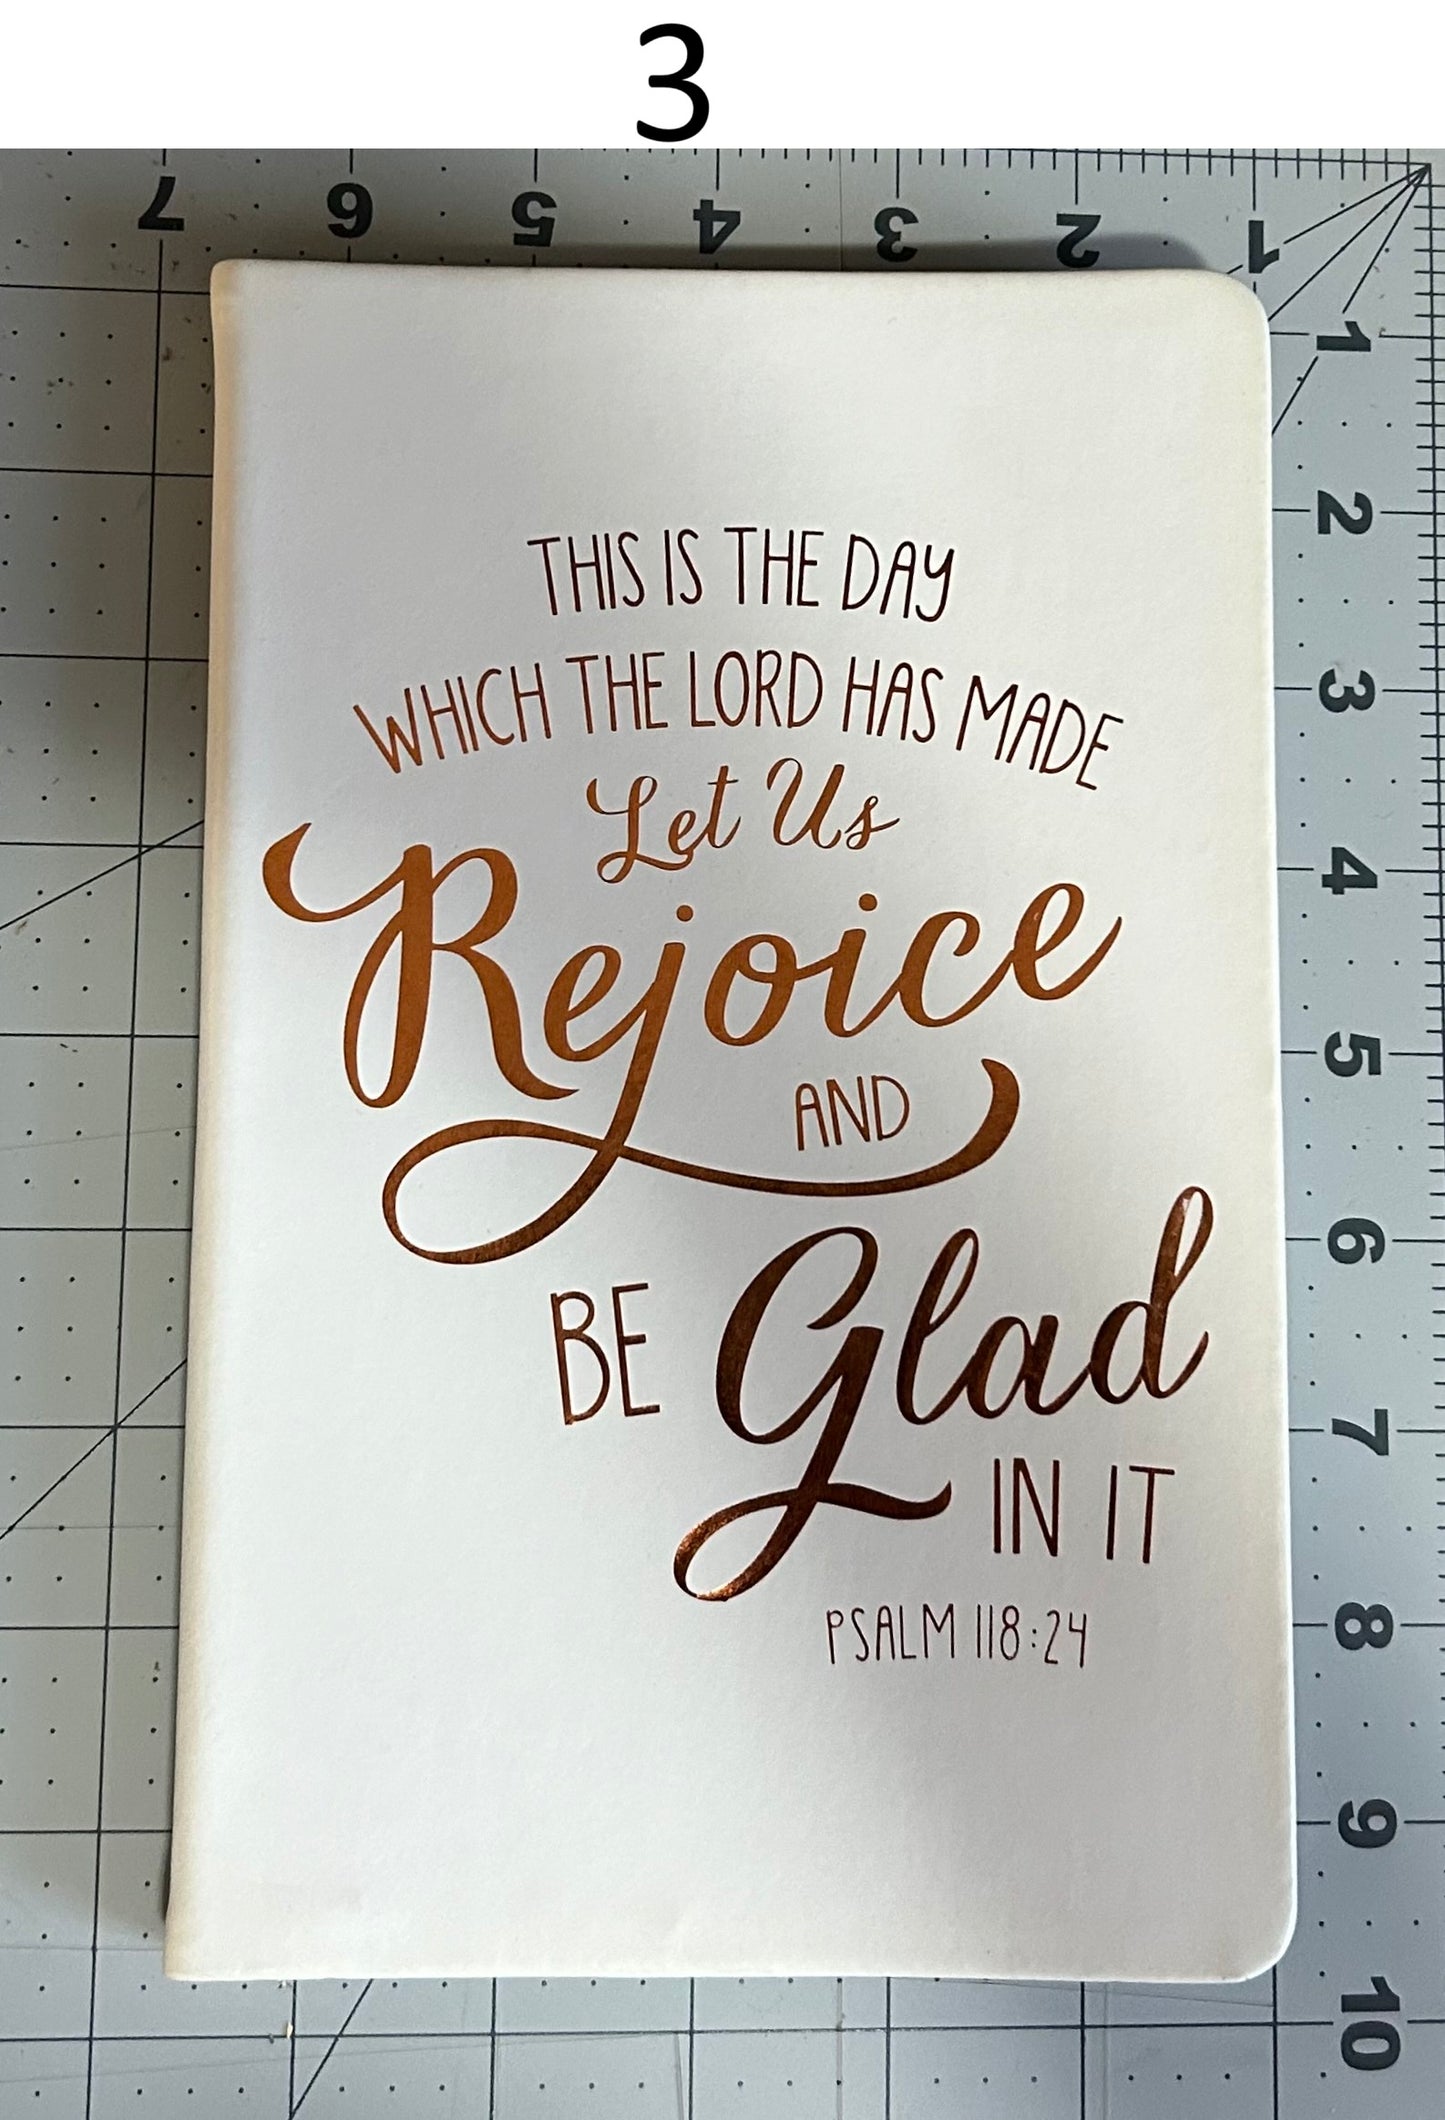 3
7 6 5 4 3 2 1
1
2
THIS IS THE DAY
3
WHICH THE LORD HAS MADE
Let Us
4
Rejoice
5
AND
6
BE Glad
7
IN IT
8
PSALM 118:24
9
10